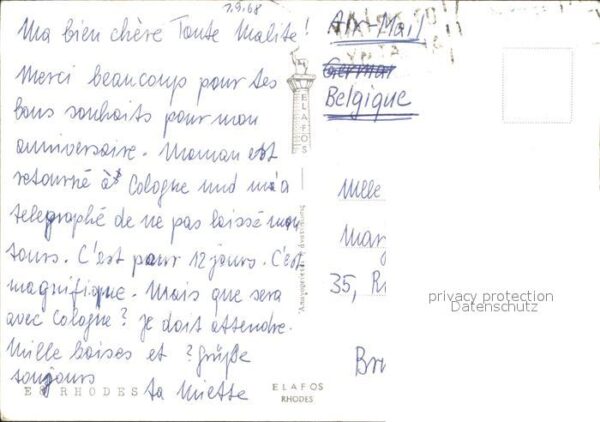 1.9.68
Ma bien chère Tante Malite!
Merci beaucoup pour tes
bons souhaits pour mon
anniversaire. Maman est
retourné à Cologne und m'a
telegraphé de ne pas laissé mon
tours. C'est pour 12 jours. C'est
magnifique. Mais que sera
avec Cologne? Je doit attendre.
Mille baises et ? Grüße
toujours
ta Miette
E6 RHODES
ELAFOS
ELAFOS
RHODES
Air-Mail
German
Belgique
Mlle
Mar
35, R
Bru
privacy protection
Datenschutz